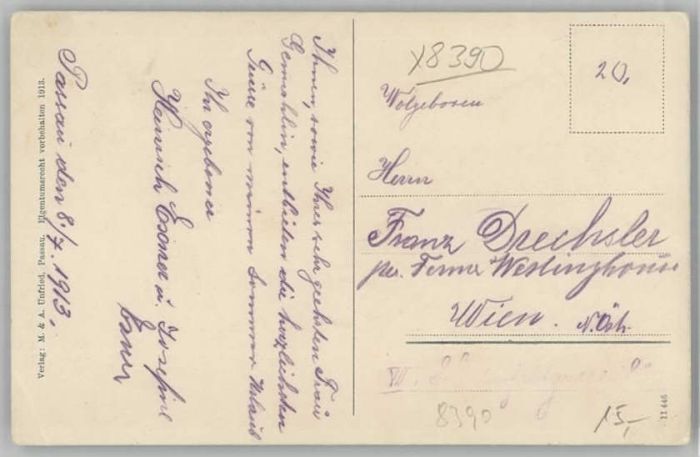 Passau den 8./7. 1913.
Ihnen, sowie Ihrer sehr geehrten Frau
Gemahlin, entbieten die herzlichsten
Grüsse von meinem Sommer Urlaub
Ihr ergebener
Heinrich Exner u. Josefine
Exner
Verlag: M. & A. Unfried, Passau. Eigentumsrecht vorbehalten 1913.
x8390
20,
Wolgeboren
Herrn
Franz Drechsler
per Firma Westinghouse
Wien. N. Östr.
VII.
8390
15,-
11446